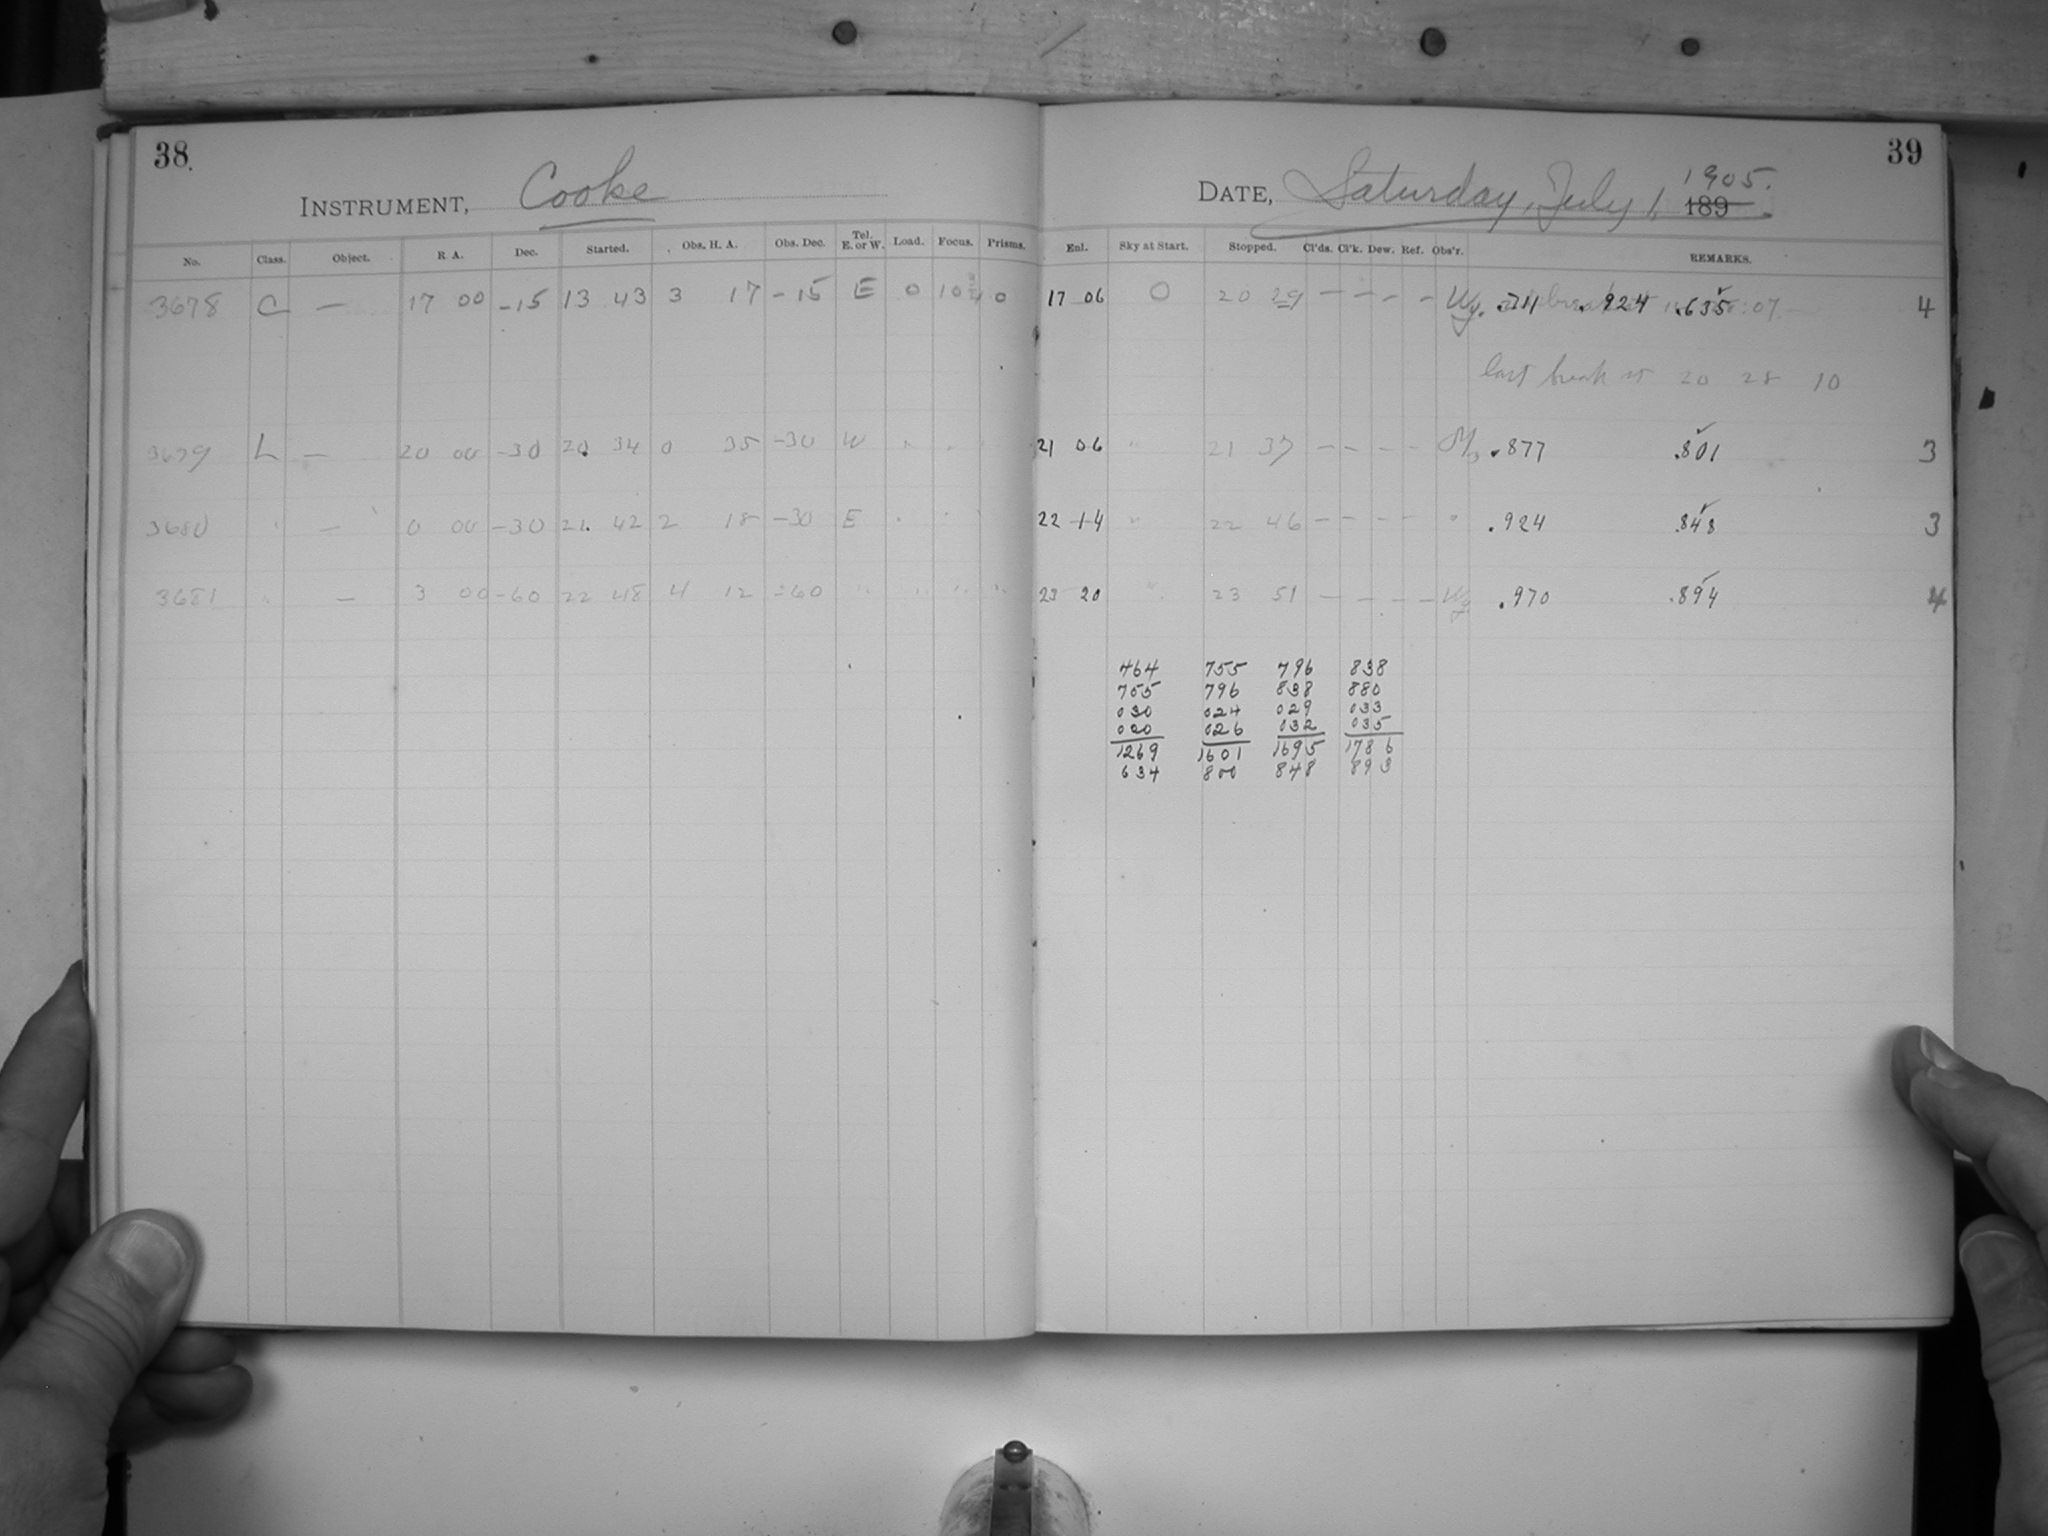 38.
INSTRUMENT, Cooke
No. Class. Object. R. A. Dec. Started. Obs. H. A. Obs. Dec. Tel. E. or W. Load. Focus. Prisms.
3678 C — 17 00 -15 13 43 3 17 -15 E 0 10 0
3679 L — 20 00 -30 20 34 0 35 -30 W " " "
3680 " — 0 00 -30 21 42 2 18 -30 E " " "
3681 " — 3 00 -60 22 48 4 12 -60 " " " "
39
DATE, Saturday, July 1, 1905.
189
Enl. Sky at Start. Stopped. Cl'ds. Cl'k. Dew. Ref. Obs'r. REMARKS.
17 06 0 20 29 — — — — Wy. .711 .924 .635 :07 4
last break at 20 28 10
21 06 " 21 37 — — — — .877 .801 3
22 14 " 22 46 — — — — " .924 .848 3
23 20 " 23 51 — — — — Wy .970 .894 4
464 755 796 838
755 796 838 880
030 024 029 033
020 026 032 035
1269 1601 1695 1786
634 800 848 893